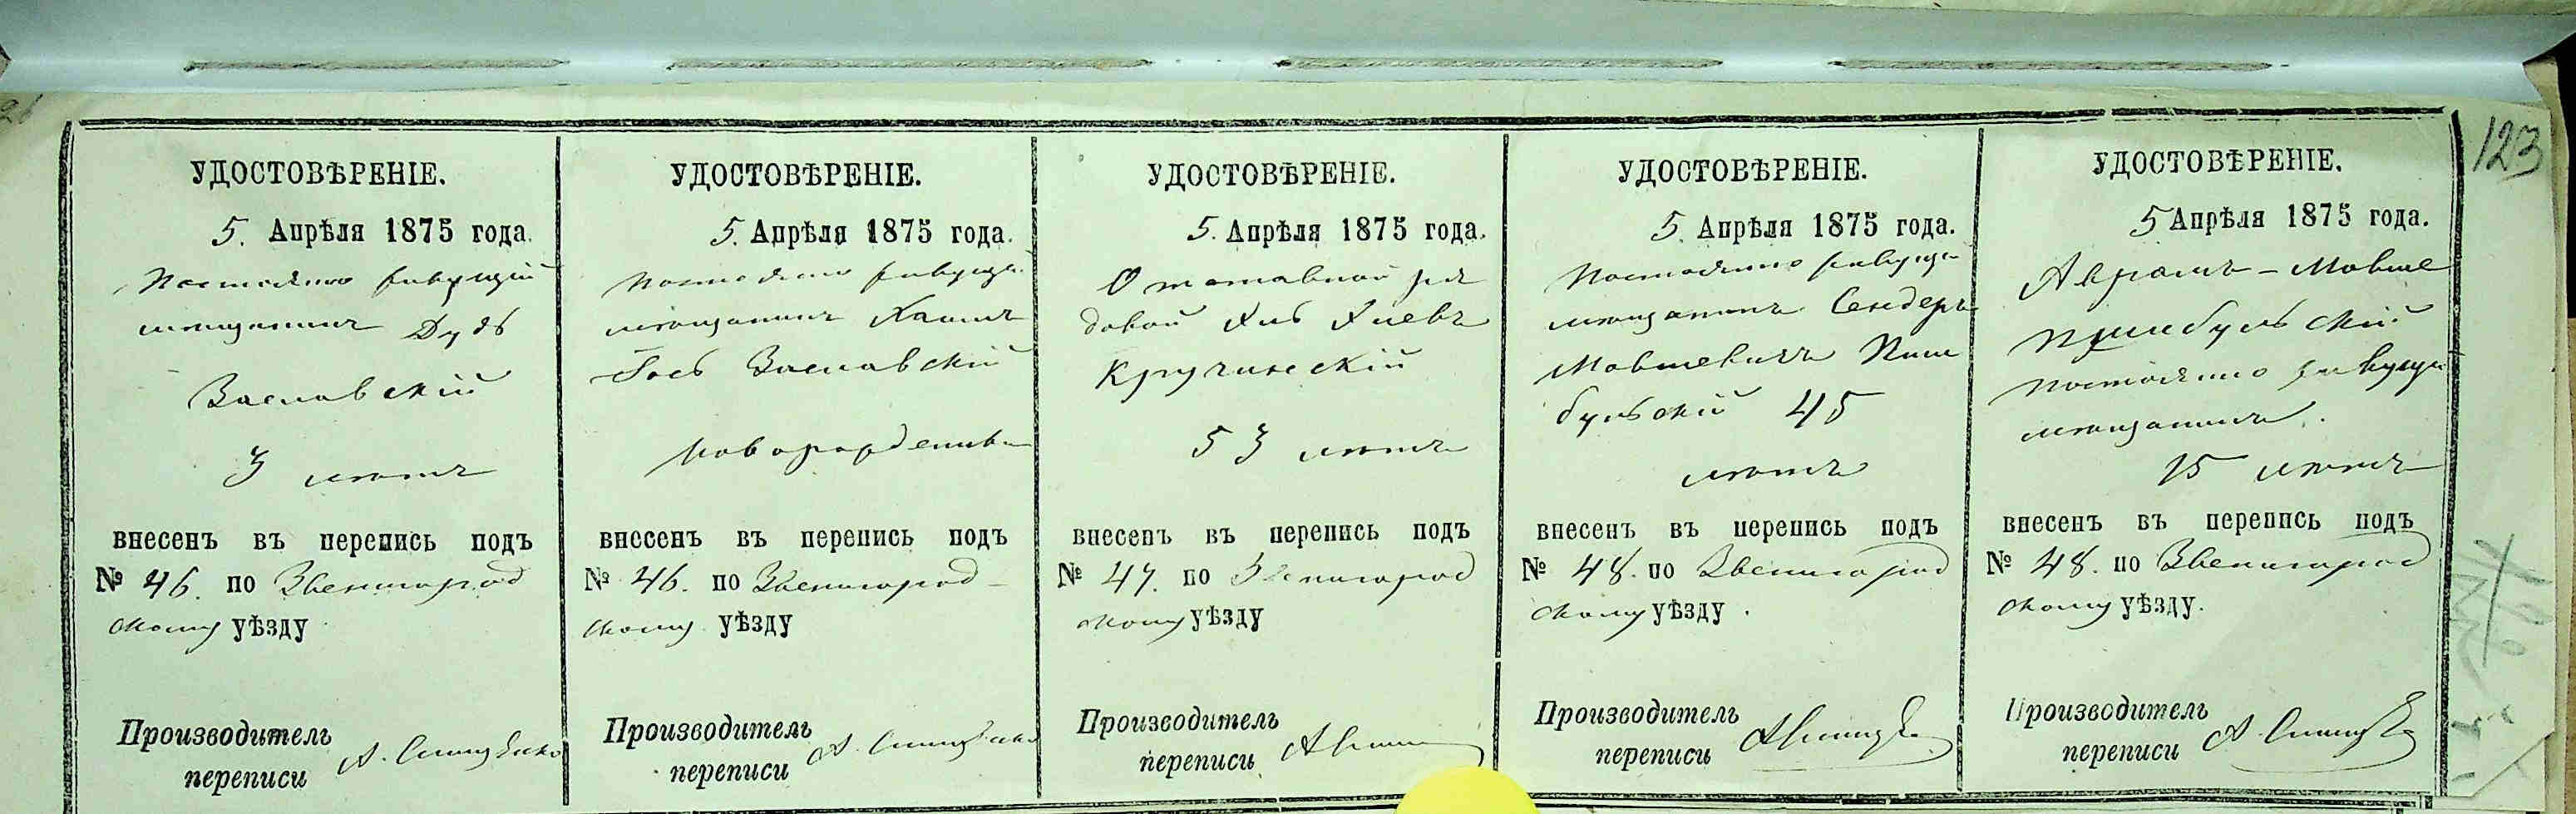 123
УДОСТОВѢРЕНІЕ.
5. Апрѣля 1875 года.
Постоянно живущій
мѣщанинъ Дудь
Заславскій
3 лѣтъ
внесенъ въ перепись подъ
№ 46. по Звенигород
скому уѣзду
Производитель
переписи
УДОСТОВѢРЕНІЕ.
5. Апрѣля 1875 года.
Постоянно живущ.
мѣщанинъ Хаимъ
Заславскій
новорожденный
внесенъ въ перепись подъ
№ 46. по Звенигород-
скому уѣзду
Производитель
переписи
УДОСТОВѢРЕНІЕ.
5. Апрѣля 1875 года.
Отставной ря
довой
Кручинскій
53 лѣтъ
внесенъ въ перепись подъ
№ 47. по Звенигород
скому уѣзду
Производитель
переписи
УДОСТОВѢРЕНІЕ.
5. Апрѣля 1875 года.
Постоянно живущ
мѣщанинъ Сендеръ
Мовшевичъ Пши
бульскій 45
лѣтъ
внесенъ въ перепись подъ
№ 48. по Звенигород
скому уѣзду.
Производитель
переписи
УДОСТОВѢРЕНІЕ.
5 Апрѣля 1875 года.
Аврамъ-Мовше
Пшибульскій
постоянно живущи
мѣщанинъ.
15 лѣтъ
внесенъ въ перепись подъ
№ 48. по Звенигород
скому уѣзду.
Производитель
переписи